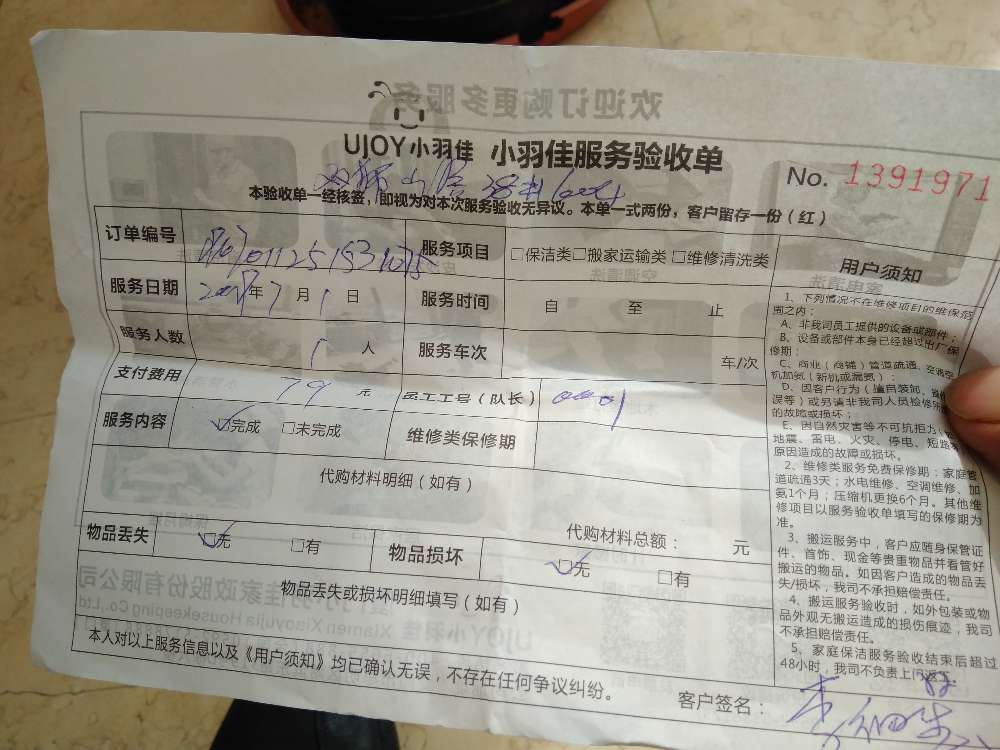 欢迎订购更多服务
UJOY小羽佳 小羽佳服务验收单
No. 1391971
本验收单一经核签，即视为对本次服务验收无异议。本单一式两份，客户留存一份（红）
订单编号 服务项目 □保洁类□搬家运输类 □维修清洗类
服务日期 年 7 月 1 日 服务时间 自 至 止
服务人数 1 人 服务车次 车/次
支付费用 79 元 员工工号（队长）
服务内容 ☑完成 □未完成 维修类保修期
代购材料明细（如有）
代购材料总额： 元
物品丢失 ☑无 □有 物品损坏 ☑无 □有
物品丢失或损坏明细填写（如有）
本人对以上服务信息以及《用户须知》均已确认无误，不存在任何争议纠纷。
客户签名：
用户须知
1、下列情况不在维修项目的维保范
围之内：
A、非我司员工提供的设备或部件；
B、设备或部件本身已经超过出厂保
修期；
C、商业（商铺）管道疏通、空调空
机加氨（新机或漏氨）；
D、因客户行为（擅自装卸、
误等）或另请非我司人员检修所
的故障或损坏；
E、因自然灾害等不可抗拒力（
地震、雷电、火灾、停电、短路
原因造成的故障或损坏。
2、维修类服务免费保修期：家庭管
道疏通3天；水电维修、空调维修、加
氨1个月；压缩机更换6个月。其他维
修项目以服务验收单填写的保修期为
准。
3、搬运服务中，客户应随身保管证
件、首饰、现金等贵重物品并看管好
搬运的物品。如因客户造成的物品丢
失/损坏，我司不承担赔偿责任。
4、搬运服务验收时，如外包装或物
品外观无搬运造成的损伤痕迹，我司
不承担赔偿责任。
5、家庭保洁服务验收结束后超过
48小时，我司不负责上门返工。